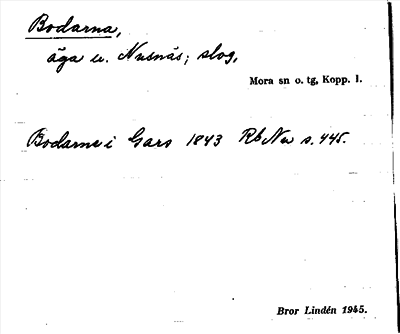 Bodarna,
äga u. Nusnäs; slog,
Mora sn o. tg, Kopp. l.
Bodarne i Gars 1843 Rb Nu s. 445.
Bror Lindén 1945.